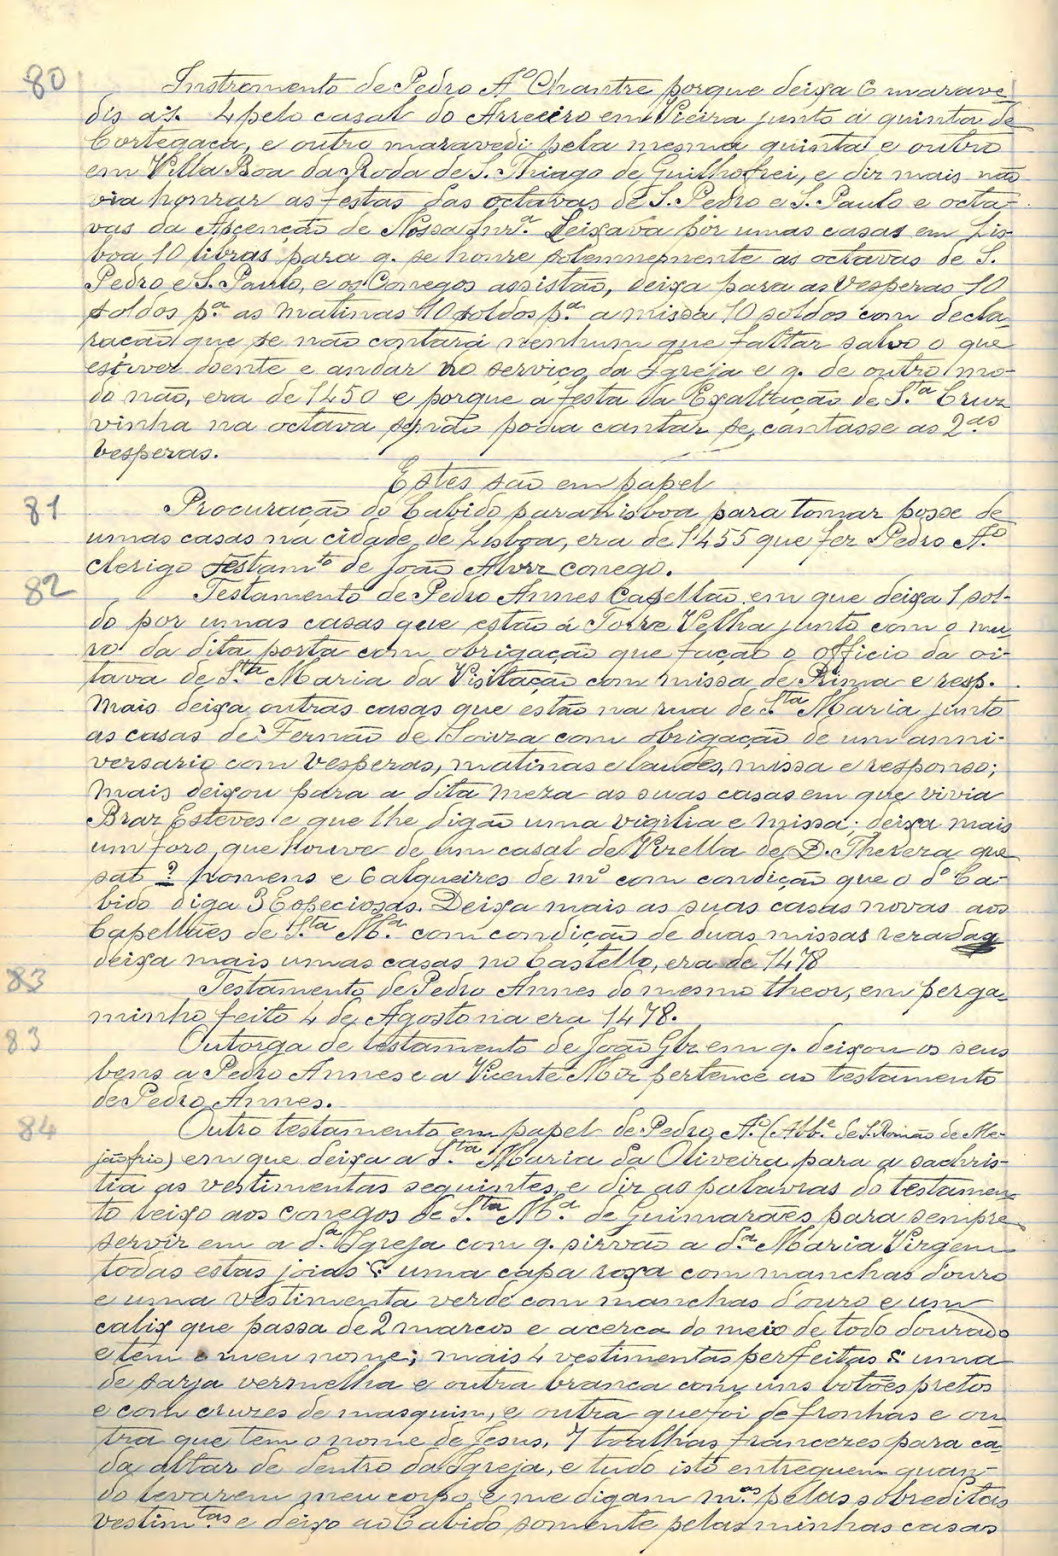 80 Instromento de Pedro Aº Chantre porque deixa 6 marave-
dis a s. 4 pelo casal do Arreciro em Vieira junto á quinta de
Cortegaca, e outro maravedi pela mesma quinta e outro
em Villa Boa da Roda de S. Thiago de Guilhofrei, e diz mais não
via honrar as festas das octavas de S. Pedro e S. Paulo e octa-
vas da Ascenção de Nossa Snrª. Deixava por umas casas em Lis-
boa 10 libras para q. se honre solemnemente as octavas de S.
Pedro e S. Paulo, e os Conegos assistão, deixa para as Vesperas 10
soldos pª. as matinas 10 soldos pª. a missa 10 soldos com decla-
ração que se não contará nenhum que faltar salvo o que
estiver doente e andar no serviço da Igreja e q. de outro mo-
do não, era de 1450 e porque a festa da Exaltação de S.ta Cruz
vinha na octava e não podia cantar se, cantasse as 2as
vesperas.
Estes são em papel
81 Procuração do Cabido para Lisboa para tomar posse de
umas casas na cidade de Lisboa, era de 1455 que fez Pedro Aº
clerigo testamto de João Alvrz conego.
82 Testamento de Pedro Annes Capellão, em que deixa 1 sol-
do por umas casas que estão á Torre Velha junto com o mu-
ro da dita porta com obrigação que fação o officio da oi-
tava de S.ta Maria da Visitação com missa de Prima e resp.
Mais deixa outras casas que estão na rua de S.ta Maria junto
as casas de Fernão de Souza com obrigação de um anni-
versario com vesperas, matinas e laudes, missa e responso;
Mais deixou para a dita meza as suas casas em que vivia
Braz Esteves e que lhe digão uma vigilia e missa; deixa mais
um foro que houve de um casal de Virella de D. Thereza que
sai ? homens e 6 alqueires de mº com condição que o dº Ca-
bido diga 3 Especiosas. Deixa mais as suas casas novas aos
Capellães de S.ta M.ª com condição de duas missas rezadas
deixa mais umas casas no Castello, era de 1478
83 Testamento de Pedro Annes do mesmo theor, em perga-
minho feito 4 de Agosto na era 1478.
83 Outorga de testamento de João Glz em q. deixou os seus
bens a Pedro Annes e a Vicente Miz pertence ao testamento
de Pedro Annes.
84 Outro testamento em papel de Pedro Aº. (Abb.e de S. Romão de Me-
jãofrio) em que deixa a S.ta Maria da Oliveira para a sachris-
tia as vestimentas seguintes, e diz as palavras do testamen-
to leixo aos conegos de S.ta M.ª de Guimarães, para sempre
servir em a d.ª Igreja com q. sirvão a d.ª Maria Virgem
todas estas joias s: uma capa roxa com manchas d'ouro
e uma vestimenta verde com manchas d'ouro e um
calix que passa de 2 marcos e acerca do meio de todo dourado
e tem o meu nome; mais 4 vestimentas perfeitas s: uma
de sarja vermelha e outra branca com uns botões pretos
e com cruzes de masquim, e outra que foi de fronhas e ou-
tra que tem o nome de Jesus, 7 toalhas francezes para ca-
da altar de dentro da Igreja, e tudo isto entreguem quan-
do levarem meu corpo e me digam m.as pelas sobreditas
vestim.tas e deixo ao Cabido somente pelas minhas casas